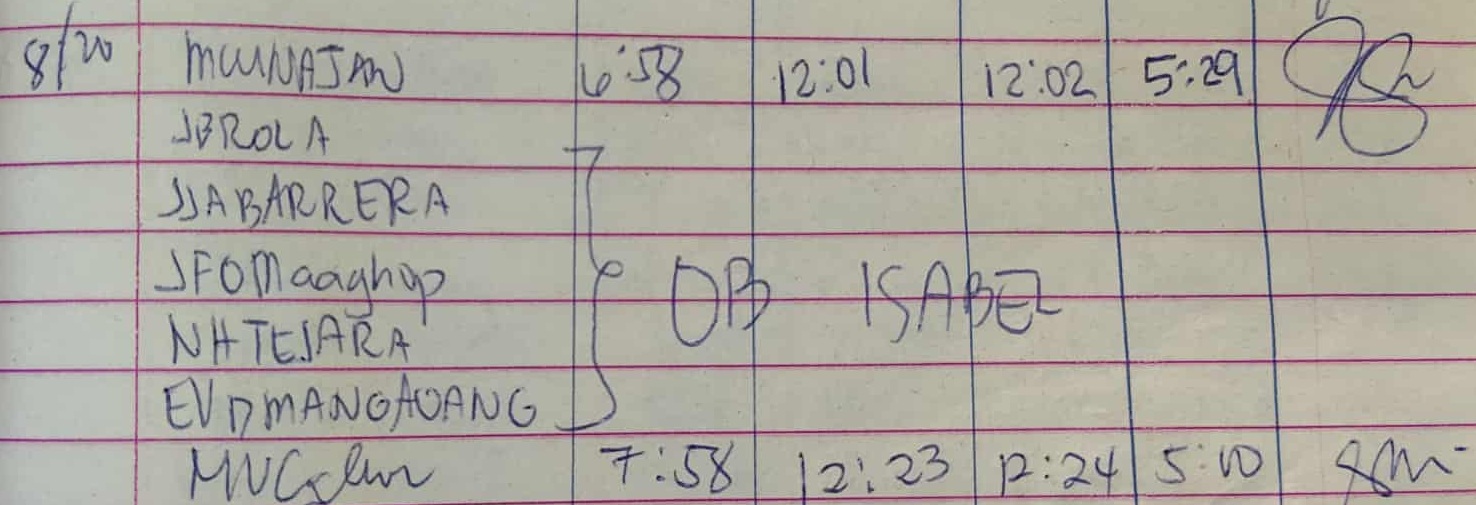 8/20 MWUNAJAN 6:58 12:01 12:02 5:29
JBROLA
JJABARRERA
JFOMaaghop
OB ISABEL
NHTEJARA
EVDMANGAOANG
7:58 12:23 12:24 5:10